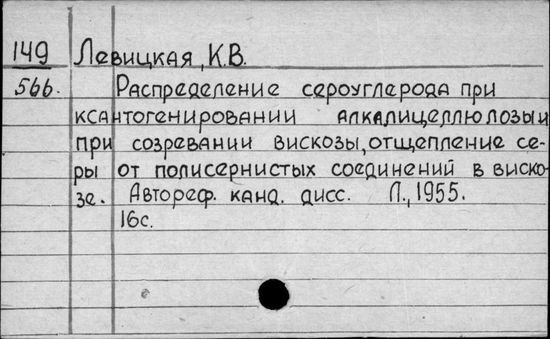 149 Левицкая, К.В.
566. Распределение сероуглерода при
ксантогенировании алкалицеллюлозы и
при созревании вискозы, отщепление се-
ры от полисернистых соединений в виско-
зе. Автореф. канд. дисс. Л., 1955.
16с.